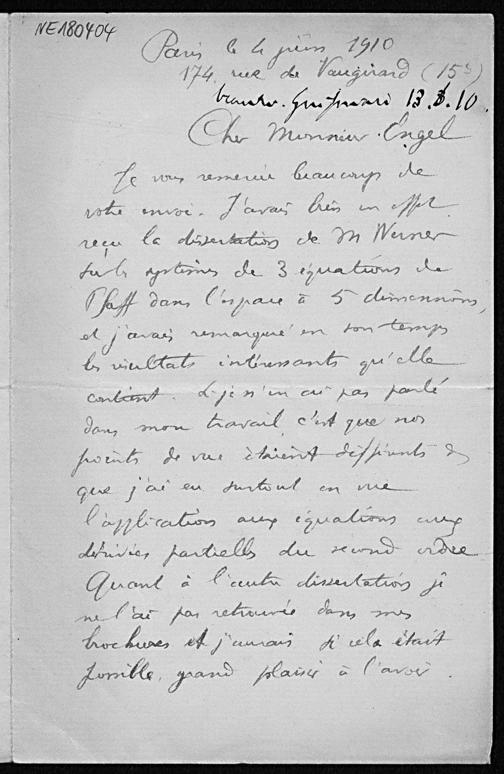 NE180404
Paris le 4 juin 1910
174 rue de Vaugirard (15e)
13.6.10.
Cher Monsieur Engel
Je vous remercie beaucoup de
votre envoi. J'avais bien en effet
reçu la dissertation de M Werner
sur les systèmes de 3 équations de
Pfaff dans l'espace à 5 dimensions,
et j'avais remarqué en son temps
les résultats intéressants qu'elle
contient. Si je n'en ai pas parlé
dans mon travail, c'est que nos
points de vue étaient différents et
que j'ai eu surtout en vue
l'application aux équations aux
dérivées partielles du second ordre
Quant à l'autre dissertation je
ne l'ai pas retrouvée dans mes
brochures et j'aurais si cela était
possible, grand plaisir à l'avoir.